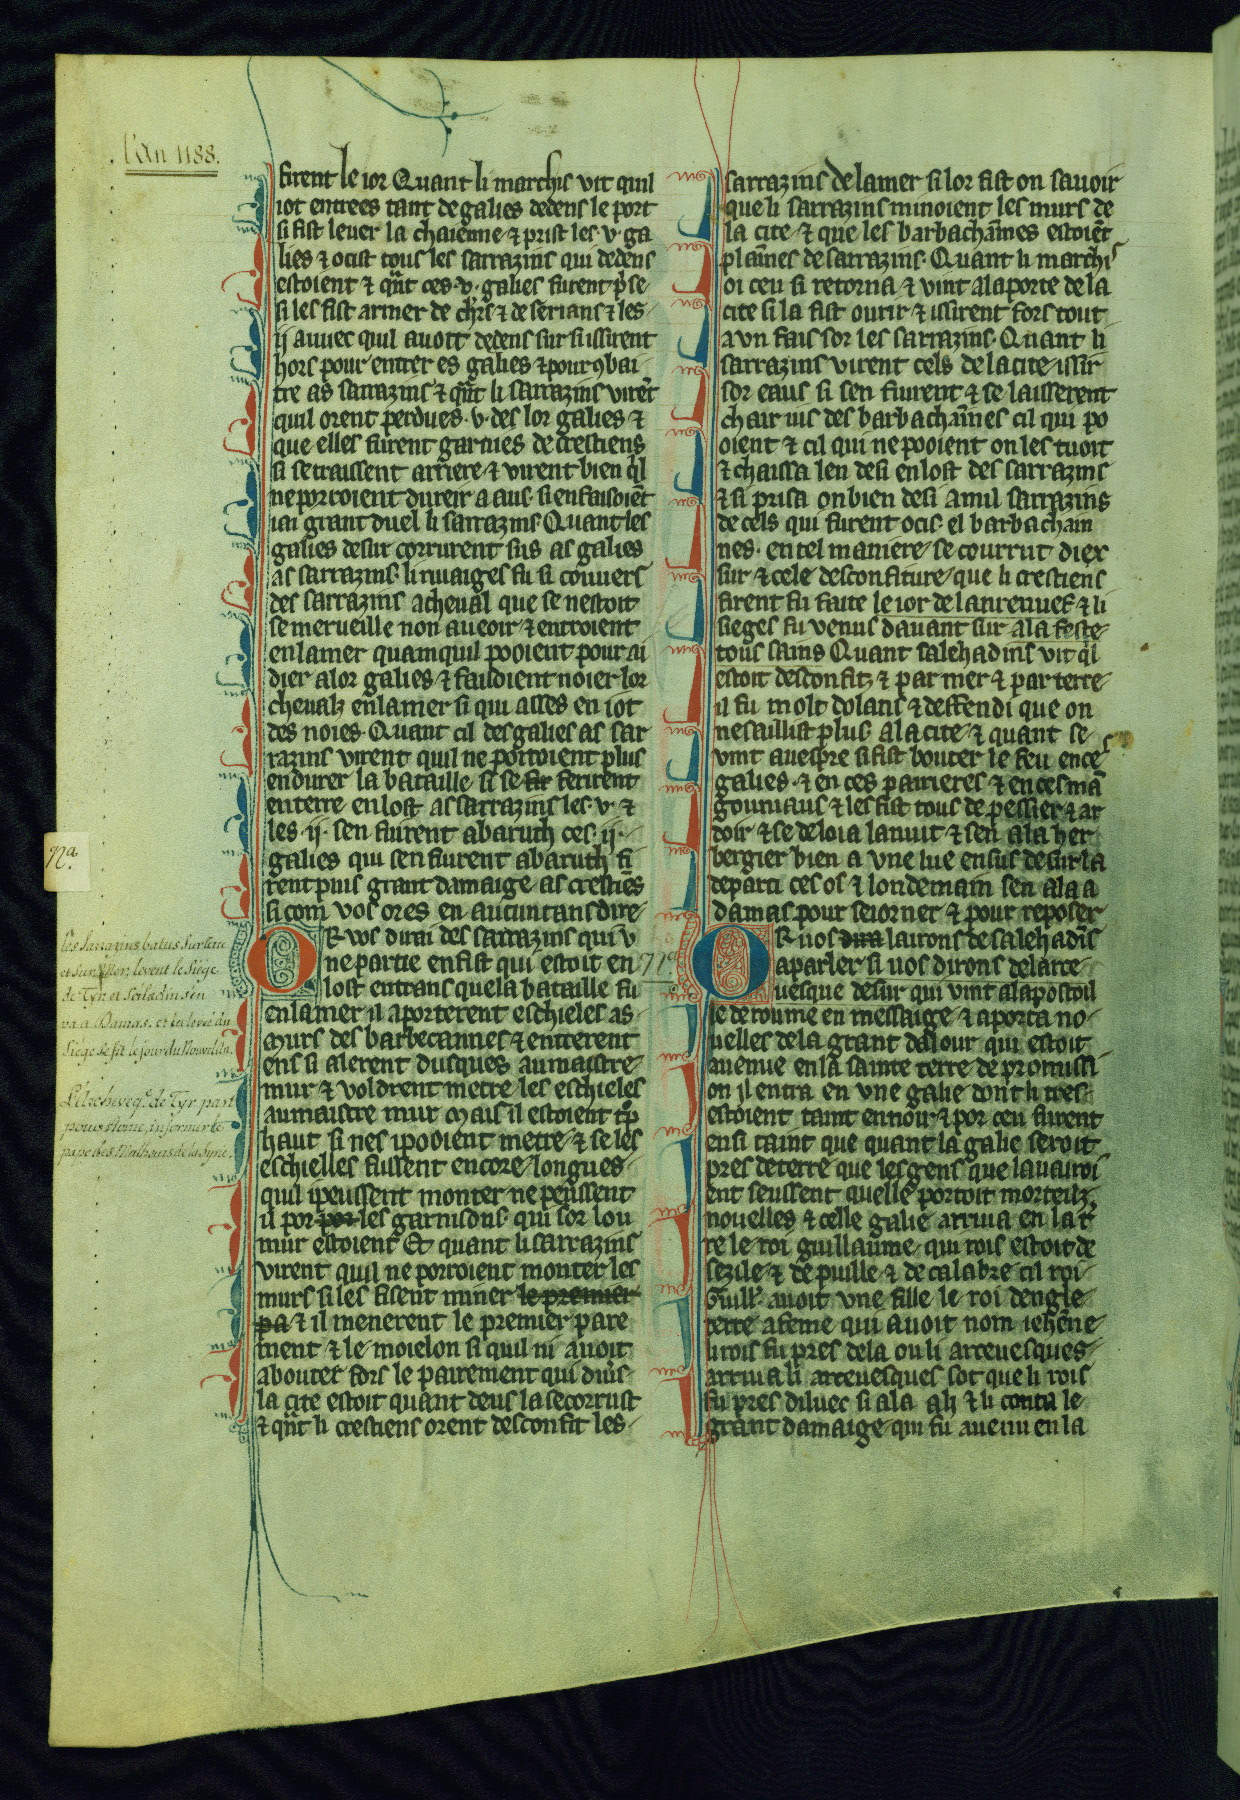 l'An 1188.
firent le ior Quant li marchis vit quil
iot entrees tant de galies dedens le port
si fist lever la chaienne ⁊ prist les ·v· ga
lies ⁊ ocist tous les sarrazins qui dedens
estoient ⁊ qn̄t ces ·v· galies furent p̄se
si les fist armer de ch'rs ⁊ de serians ⁊ les
ij auuec quil auoit dedens sur si issirent
hors pour entrer es galies ⁊ pour ꝯbai
tre as sarrazins ⁊ qn̄t li sarrazins virēt
quil orent perdues ·v· des lor galies ⁊
que elles furent garnies de crestiens
si setraissent arriere ⁊ virent bien q̄l
ne porroient dureir a aus si en faisoiēt
iai grant duel li sarrazins Quant les
galies desur corrurent sus as galies
as sarrazins li riuaiges fu si couuers
des sarrazins acheual que se nestoit
se merueille non aueoir ⁊ entroient
enlamer quamquil pooient pour ai
dier alor galies ⁊ faisoient noier lor
cheualz enlamer si qui asses en iot
des noies Quant cil des galies as sar
razins virent quil ne porroient plus
endurer la bataille si se fir ferirent
enterre enlost as sarrazins les ·v· ⁊
les ·ij· sen fuirent abaruth ces ·ij·
galies qui sen fuirent abaruth fi
rent puis grant damaige as crestiēs
si com vos ores en aucun tans dire
OR vos dirai des sarrazins qui v
ne partie en fist qui estoit en
lost entrans que la bataille fu
enlamer il aporterent eschieles as
murs des barbecannes ⁊ entrerent
ens si alerent dusques aumaistre
mur ⁊ voldrent metre les eschieles
aumaistre mur mais il estoient tp̄
haut si nes ipooient metre ⁊ se les
eschielles fussent encore longues
quil ipeussent monter ne peussent
il por por les garnisons qui sor lou
mur estoient Et quant li sarrazins
virent quil ne porroient monter les
murs si les fisent miner le premier
pa ⁊ il menerent le premier pare
ment ⁊ le moielon si quil ni auoit
abouter fors le pairement qui diūs
la cite estoit quant deus la secorrust
⁊ qn̄t li crestiens orent desconfit les
sarrazins de lamer si lor fist on sauoir
que li sarrazins minoient les murs de
la cite ⁊ que les barbachāmes estoiēt
plaīnes de sarrazins Quant li marchis
oi ceu si retorna ⁊ vint alaporte de la
cite si la fist ourir ⁊ issirent fors tout
a vn fais sor les sarrazins Quant li
sarrazins virent cels de la cite issir
sor eaus si sen fuirent ⁊ se laisserent
chair ius des barbachānes cil qui po
oient ⁊ cil qui ne pooient on les tuoit
⁊ chaissa len desi enlost des sarrazins
⁊ si prisa on bien desi amil sarrazins
de cels qui furent ocis el barbacham
nes · en tel maniere se courrut diex
sur ⁊ cele desconfiture que li crestiens
firent fu faite le ior de lanrenuef ⁊ li
sieges fu venus dauant sur ala feste
tous sains Quant salehadins vit q̄l
estoit desconfitz ⁊ par mer ⁊ par terre
il fu molt dolans ⁊ deffendi que on
nesaillist plus alacite ⁊ quant se
vint auespre si fist bouter le feu en ces
galies · ⁊ en ces pairieres ⁊ en ces mā
gouniaus ⁊ les fist tous depessier ⁊ ar
doir ⁊ se deloia lanuit ⁊ sen ala her
bergier bien a vne lue ensus desur la
departi ces os ⁊ londemain sen ala a
damas pour seiorner ⁊ pour reposer
OR uos dira lairons de salehadīs
aparler si uos dirons delarce
uesque desur qui vint alapostoil
le de roume en messaige ⁊ aporta no
uelles dela grant dalour qui estoit
auenue enla sainte terre de promissi
on il entra en vne galie dont li tres
estoient taint ennoir ⁊ por ceu furent
ensi taint que quant la galie seroit
pres deterre que les gens que lauairoi
ent seussent quelle portoit morteilz
nouelles ⁊ celle galie arriua en la t̄
re le roi guillaume qui rois estoit de
sezile ⁊ de puille ⁊ de calabre cil roi
Guill'. auoit vne fille le roi dengle
terre afeme qui auoit nom iehēne
li rois fu pres dela ou li arceuesques
arriua li arceuesques sot que li rois
fu pres diluec si ala ⁊ li conta le
grant damaige qui fu auenu en la
na.
779
les Sarrazins batus sur terre
et sur Mer, levent le Siège
de Tyr et Saladin s'en
va a Damas. et la levée du
Siége se fit le jour du Nouvel an.
L'archeveq. de Tyr part
pour Rome, informer le
pape des Malheurs de la Syrie.